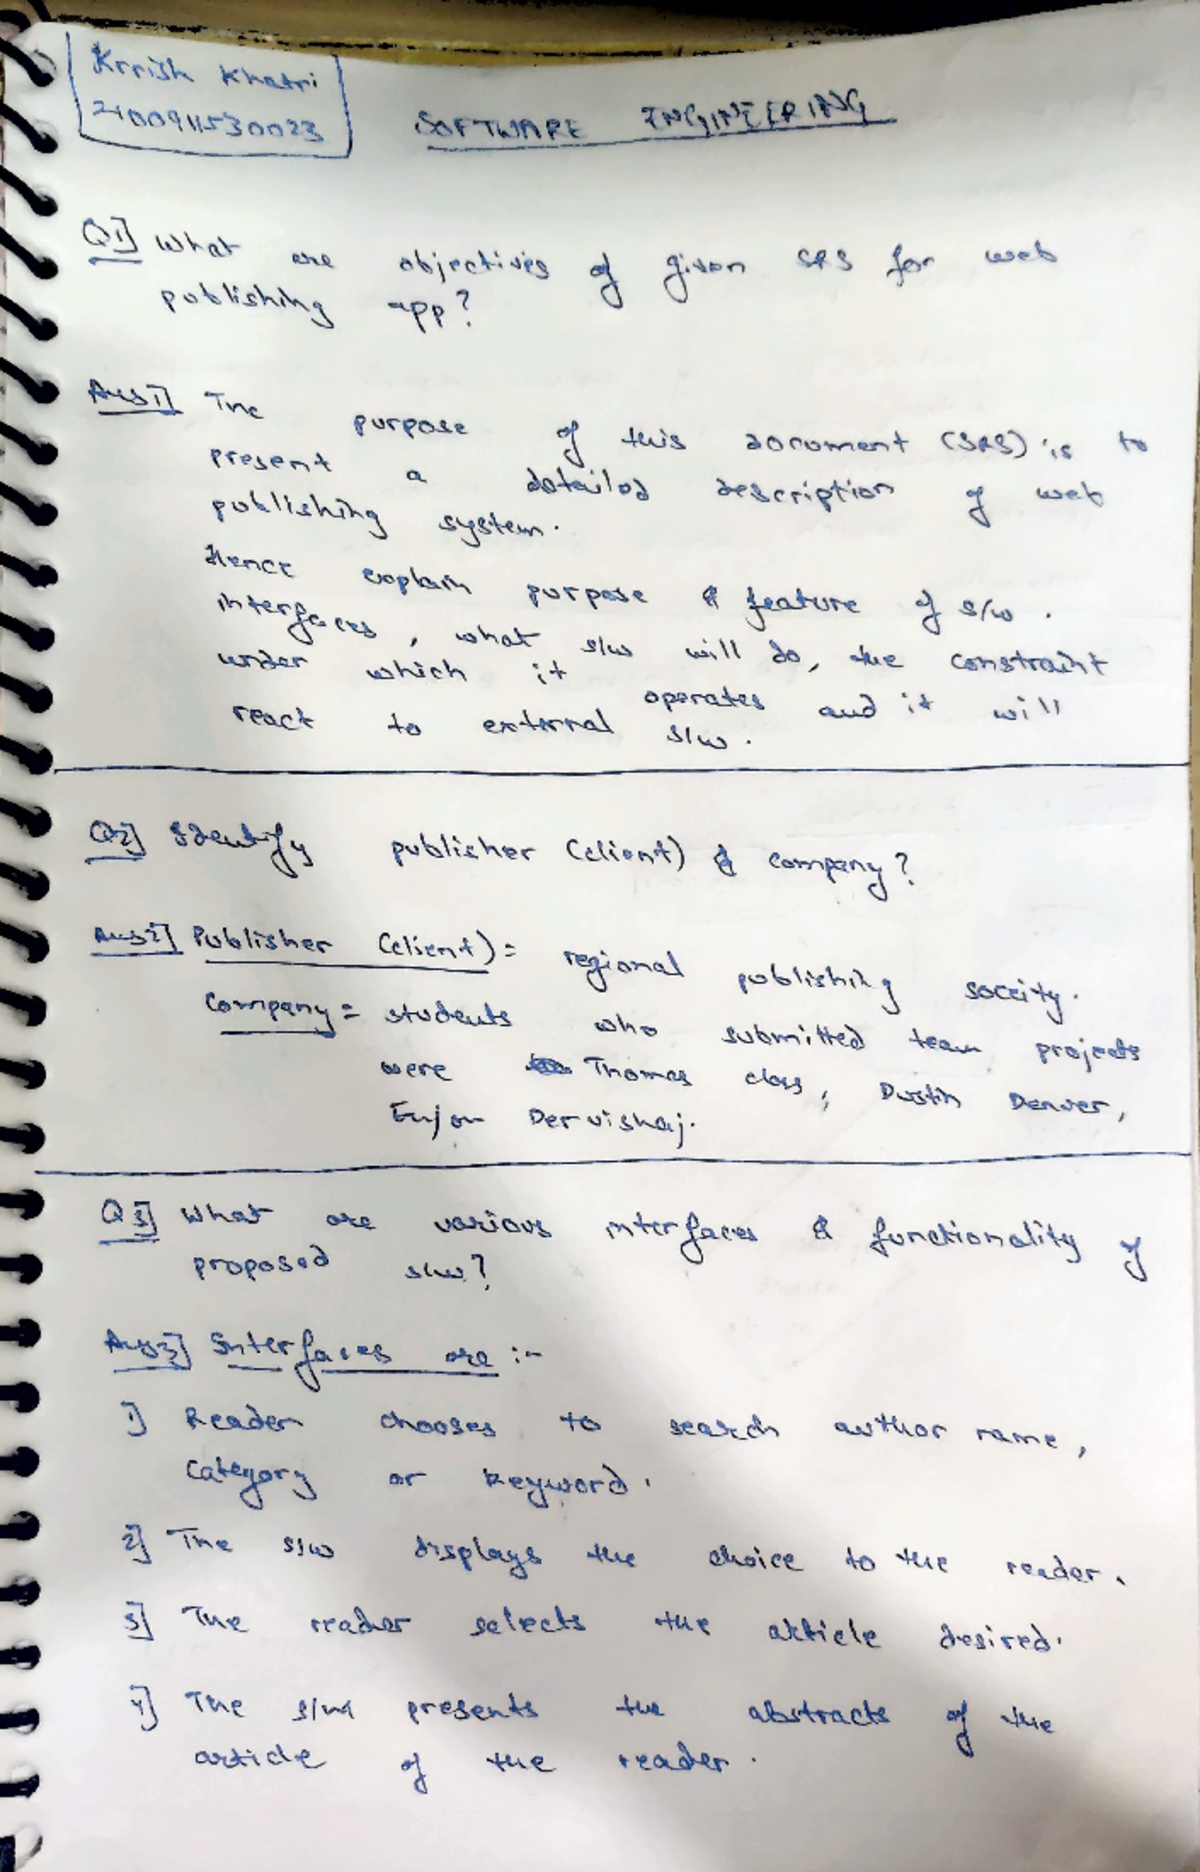 Krrish Khatri
2100911530023
SOFTWARE ENGINEERING
Q1] What are objectives of given SRS for web
publishing app?
Ans1] The purpose of this document (SRS) is to
present a detailed description of web
publishing system.
Hence explain purpose & feature of s/w.
interfaces, what s/w will do, the constraint
under which it operates and it will
react to external s/w.
Q2] Identify publisher (client) & company?
Ans2] Publisher (client) = regional publishing soceity.
Company = students who submitted team projects
were Thomas class, Dustin Denver,
Enjon Dervishaj.
Q3] What are various interfaces & functionality of
proposed s/w?
Ans3] Interfaces are :-
1] Reader chooses to search author name,
category or keyword.
2] The s/w displays the choice to the reader.
3] The reader selects the article desired.
4] The s/w presents the abstracts of the
article of the reader.